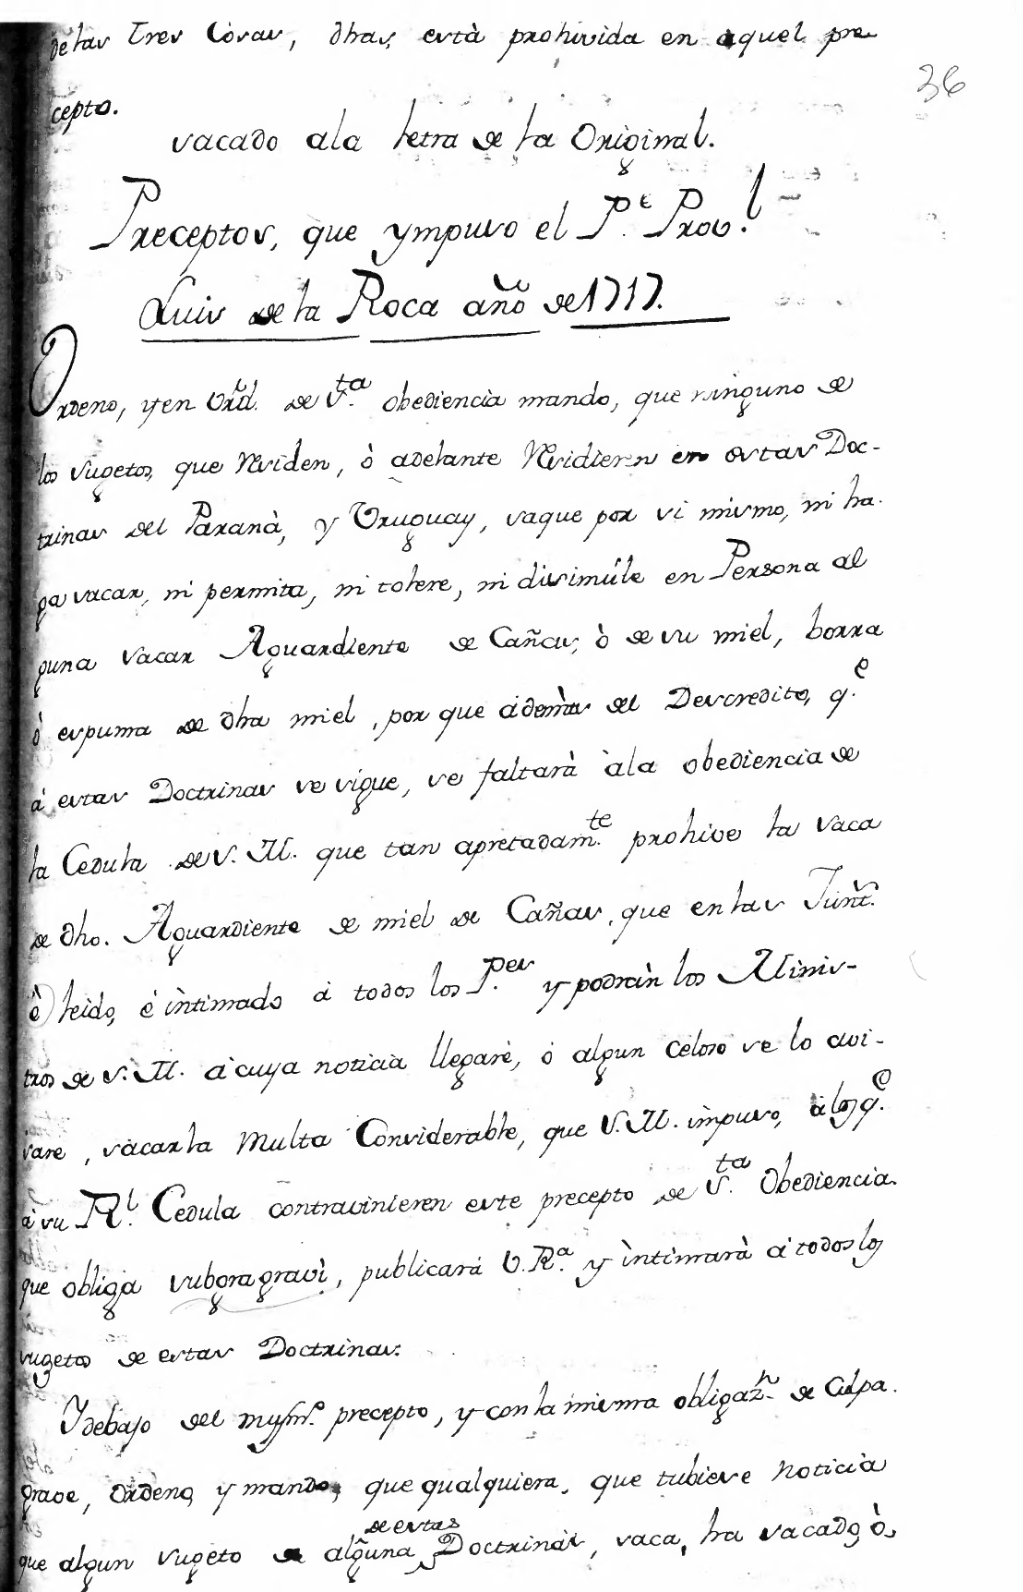 de las tres cosas, dhas, està prohivida en aquel pre
36
cepto.
sacado ala letra de la Original.
Preceptos, que ympuso el P.e Prov.l
Luis de la Roca año de 1717.
Ordeno, y en Vrd. de S.ta obediencia mando, que ninguno de
los sugetos, que Residen, ò adelante Residieren en estas Doc-
trinas del Paranà, y Uruguay, saque por si mismo, ni ha.
ga sacar, ni permita, ni tolere, ni disimúle en Persona al
guna sacar Aguardiente de Cañas, ò de su miel, borra
ò espuma de dha miel, por que ademàs del Descredito, q.e
á estas Doctrinas se sigue, se faltarà àla obediencia de
la Cedula de S. M. que tan apretadam.te prohive la saca
de dho. Aguardiente de miel de Cañas, que en las Junt.s
è leido, é intimado á todos los P.es y podràn los Minis-
tros de S. M. à cuya noticia llegaré, ó algun celoso se lo avi-
sare, sàcarla Multa Considerable, que S. M. impuso, à los q.e
à su R.l Cedula contravinieren este precepto de S.ta Obediencia.
que obliga subgragravi, publicará V. R.a y ìntimarà á todos los
sugetos de estas Doctrinas.
Y debajo del mysm.o precepto, y con la misma obligaz.n de Culpa.
grave, ordeno, y mando, que qualquiera, que tubiere noticia
de estas
que algun sugeto de alguna Doctrinas, saca, ha sacado, ò